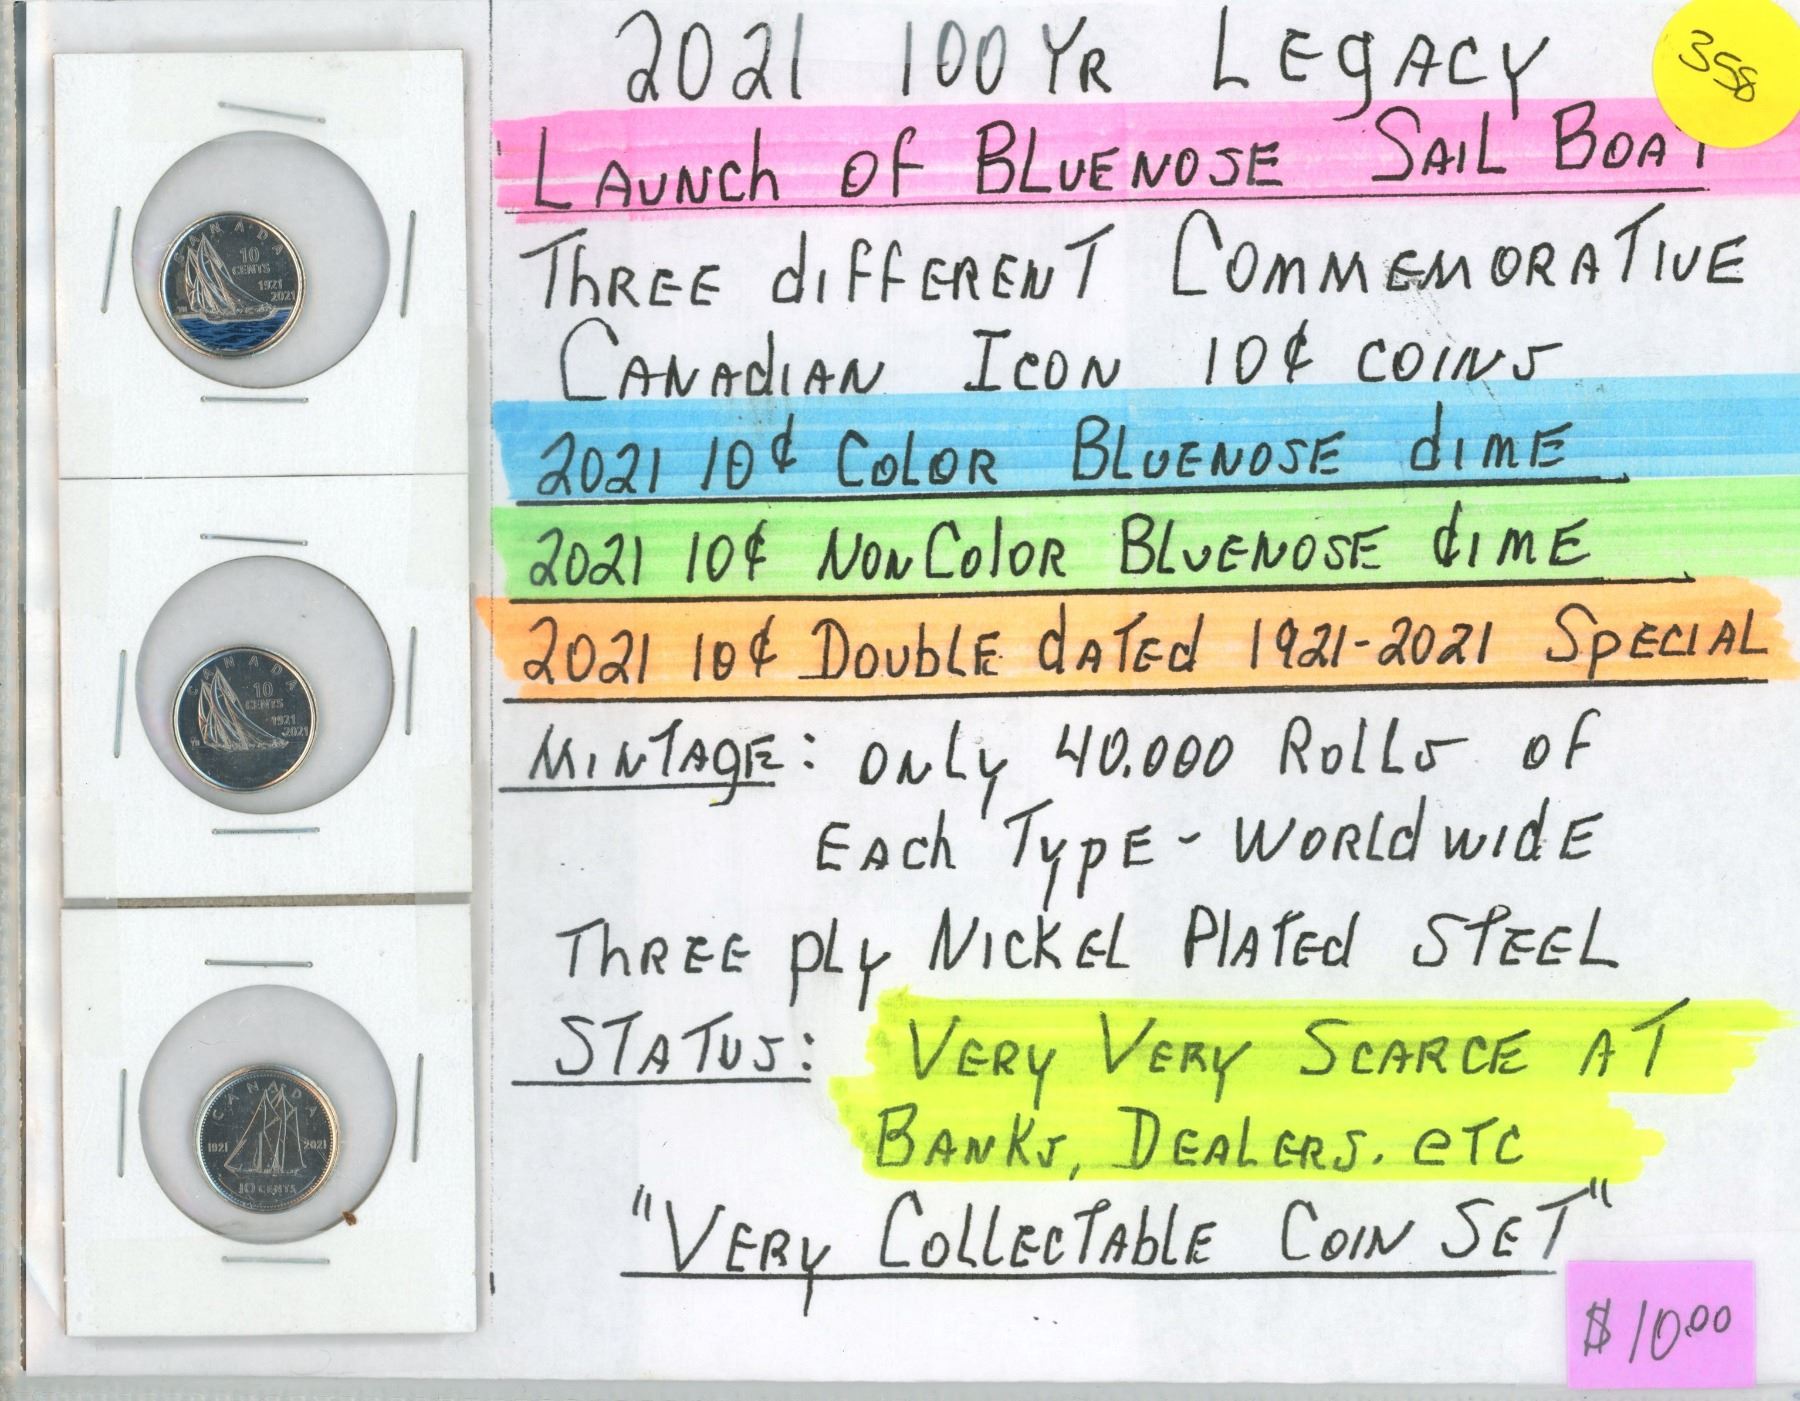 2021 100 YR LEGACY
358
LAUNCH OF BLUENOSE SAIL BOAT
THREE DIFFERENT COMMEMORATIVE
CANADIAN ICON 10¢ COINS
2021 10¢ COLOR BLUENOSE DIME
2021 10¢ NON COLOR BLUENOSE DIME
2021 10¢ DOUBLE DATED 1921-2021 SPECIAL
MINTAGE: ONLY 40,000 ROLLS OF
EACH TYPE - WORLDWIDE
THREE PLY NICKEL PLATED STEEL
STATUS: VERY VERY SCARCE AT
BANKS, DEALERS. ETC
"VERY COLLECTABLE COIN SET"
$10.00
CANADA
10
CENTS
1921
2021
CANADA
10
CENTS
1921
2021
CANADA
1921 2021
10 CENTS